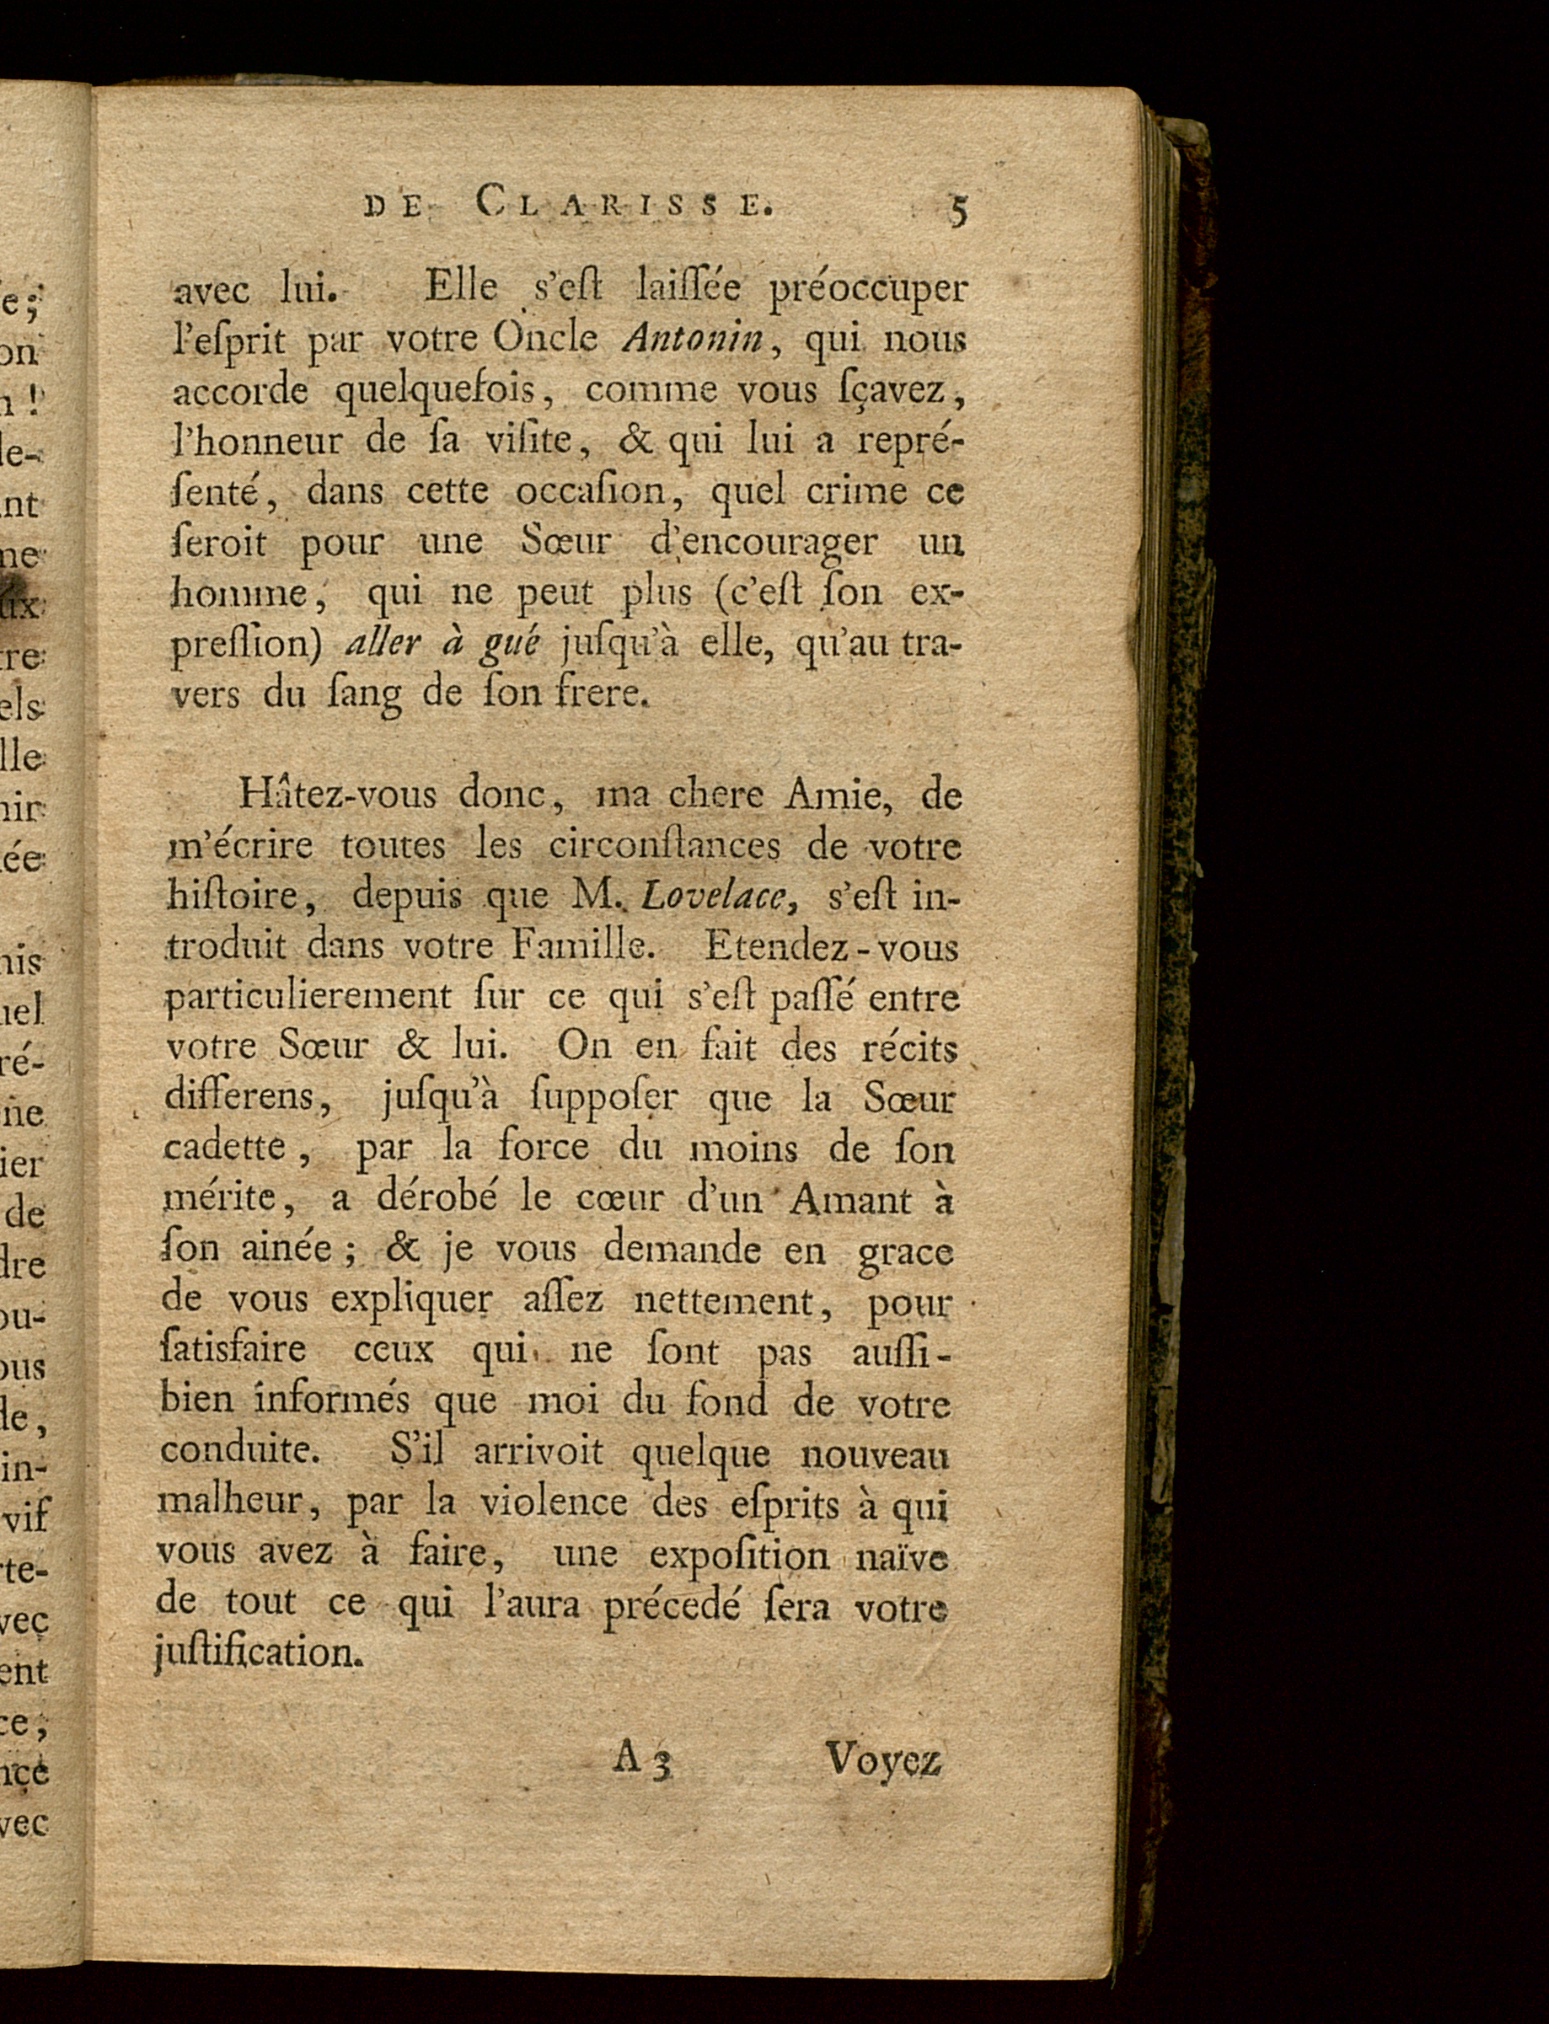 DE CLARISSE. 5
avec lui. Elle s'eſt laiſſée préoccuper
l'eſprit par votre Oncle Antonin, qui nous
accorde quelquefois, comme vous ſçavez,
l'honneur de ſa viſite, & qui lui a repré-
ſenté, dans cette occaſion, quel crime ce
ſeroit pour une Sœur d'encourager un
homme, qui ne peut plus (c'eſt ſon ex-
preſſion) aller à gué juſqu'à elle, qu'au tra-
vers du ſang de ſon frere.
Hâtez-vous donc, ma chere Amie, de
m'écrire toutes les circonſtances de votre
hiſtoire, depuis que M. Lovelace, s'eſt in-
troduit dans votre Famille. Etendez-vous
particulierement ſur ce qui s'eſt paſſé entre
votre Sœur & lui. On en fait des récits
differens, juſqu'à ſuppoſer que la Sœur
cadette, par la force du moins de ſon
mérite, a dérobé le cœur d'un Amant à
ſon ainée; & je vous demande en grace
de vous expliquer aſſez nettement, pour
ſatisfaire ceux qui ne ſont pas auſſi-
bien informés que moi du fond de votre
conduite. S'il arrivoit quelque nouveau
malheur, par la violence des eſprits à qui
vous avez à faire, une expoſition naïve
de tout ce qui l'aura précedé ſera votre
juſtification.
A 3 Voyez